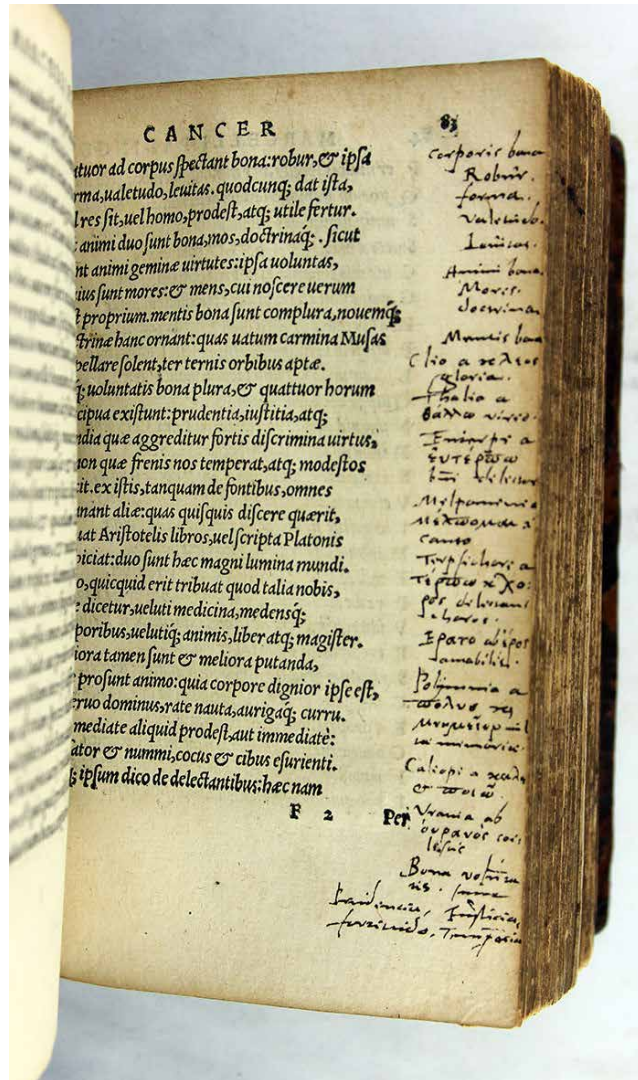 CANCER
83
tuor ad corpus spectant bona: robur, & ipsa
rma, ualetudo, leuitas. quodcunq; dat ista,
l res sit, uel homo, prodest, atq; utile fertur.
animi duo sunt bona, mos, doctrinaq́; . sicut
nt animi geminæ uirtutes: ipsa uoluntas,
ius sunt mores: & mens, cui noscere uerum
t proprium. mentis bona sunt complura, nouemq́;
trinæ hanc ornant: quas uatum carmina Musas
pellare solent, ter ternis orbibus aptæ.
q; uoluntatis bona plura, & quattuor horum
cipua existunt: prudentia, iustitia, atq;
ndia quæ aggreditur fortis discrimina uirtus,
non quæ frenis nos temperat, atq; modestos
it. ex istis, tanquam de fontibus, omnes
nant aliæ: quas quisquis discere quærit,
uat Aristotelis libros, uel scripta Platonis
piciat: duo sunt hæc magni lumina mundi.
o, quicquid erit tribuat quod talia nobis,
e dicetur, ueluti medicina, medensq́;
poribus, uelutiq́; animis, liber atq; magister.
iora tamen sunt & meliora putanda,
prosunt animo: quia corpore dignior ipse est,
eruo dominus, rate nauta, aurigaq́; curru.
mediate aliquid prodest, aut immediatè:
ator & nummi, cocus & cibus esurienti.
q; ipsum dico de delectantibus: hæc nam
F 2 Per
corporis bona
Robur.
forma.
Leuitas.
Animi bona.
Mores.
doctrina.
Mentis bona
Clio a
gloria.
Thalia a
Euterpe a
canto
Erato ab
amabilis.
Polymnia a
memoria.
Caliopi a
Vrania ab
Bona
Prudencia, Iusticia,